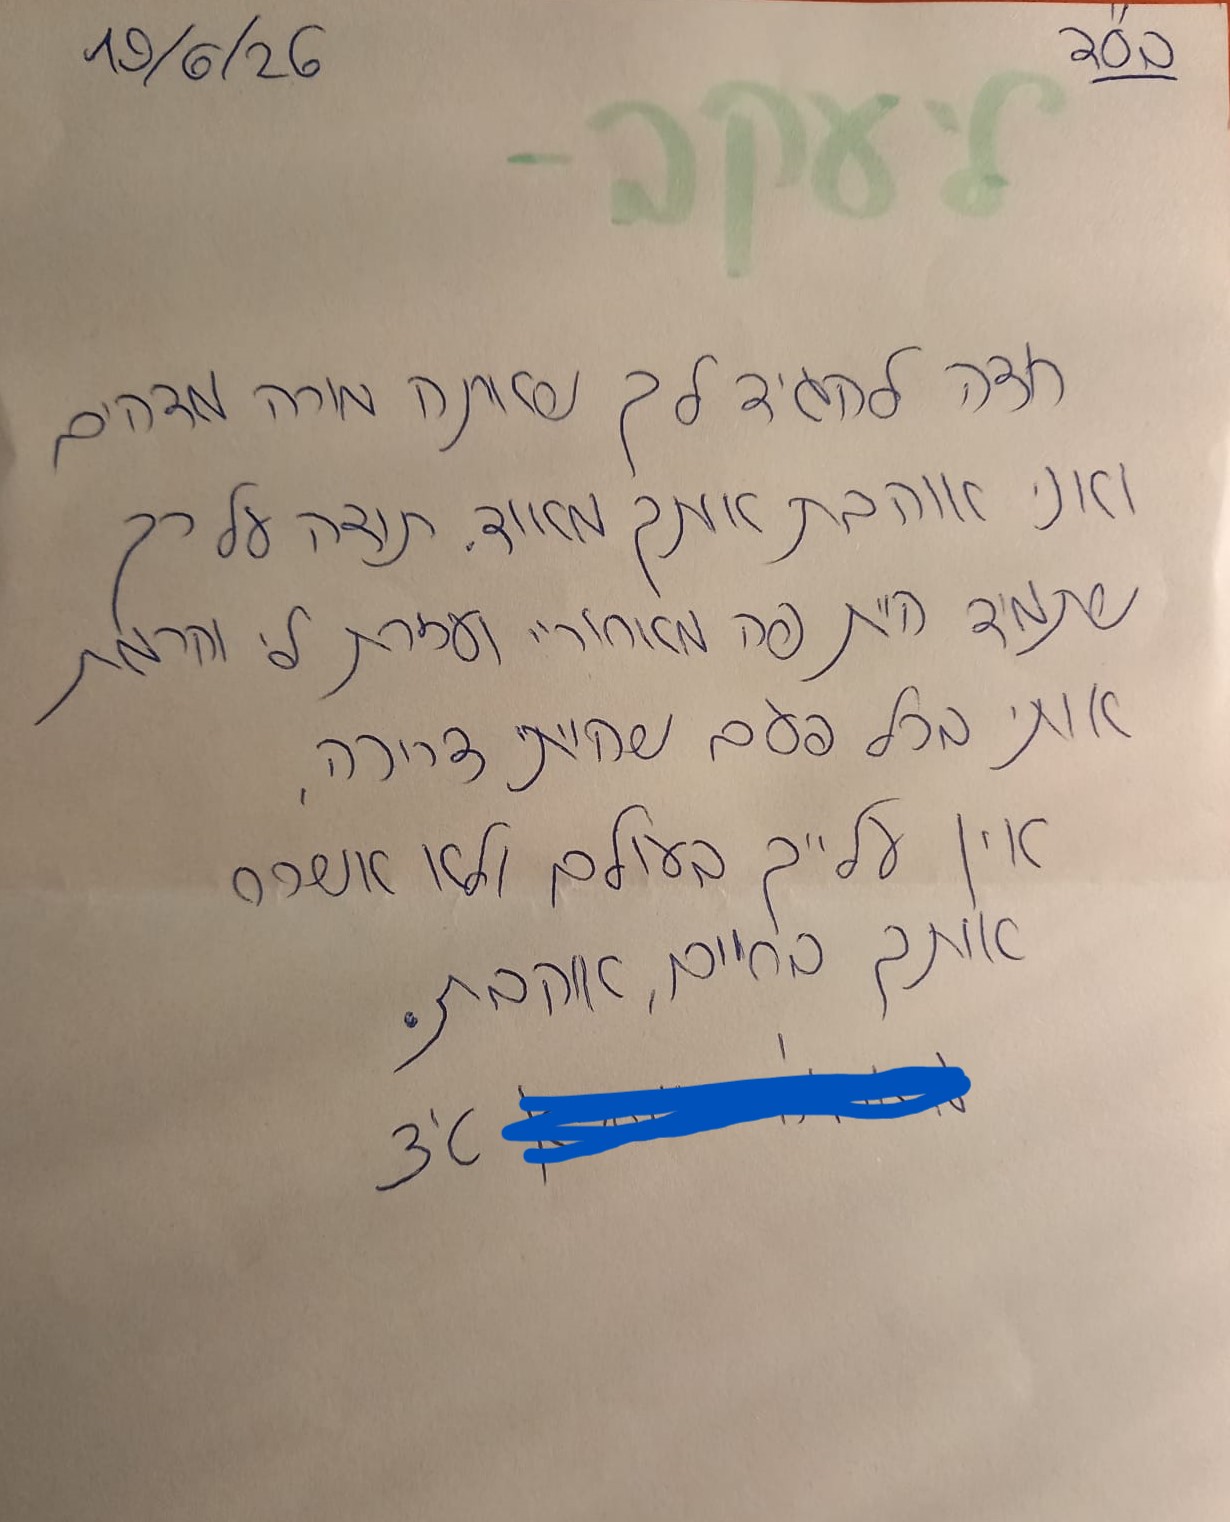 בס"ד
19/6/26
ליעקב -
רצה להגיד לך שאתה מורה מדהים
ואני אווהבת אותך מאווד. תודה על כך
שתמיד היית פה מאחוריי ועזרת לי והרמת
אותי בכל פעם שהייתי צריכה,
אין עלייך בעולם ולא אשכח
אותך בחיים, אווהבת.
ט'3